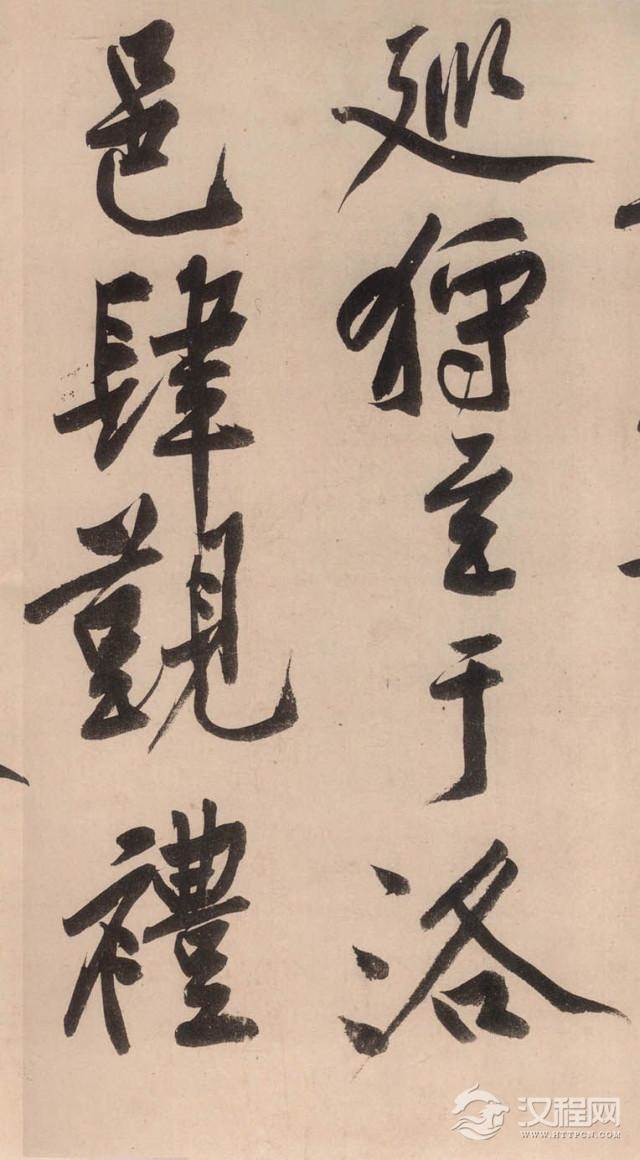 巡狩至于洛
邑肆覲禮
汉程网
WWW.HTTPCN.COM